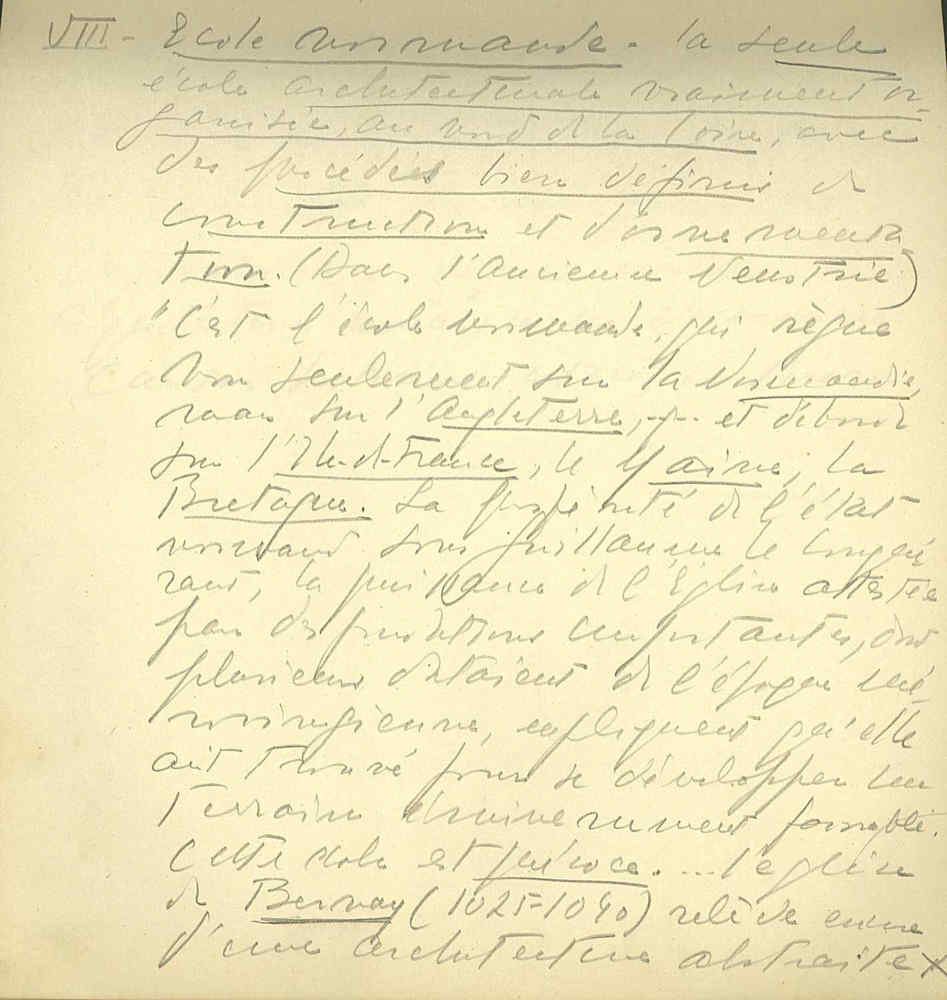 VIII - Ecole normande - la seule
école architecturale vraiment or-
ganisée, au nord de la Loire, avec
des procédés bien définis de
construction et d'ornementa
tion. (Dans l'Ancienne Neustrie)
"C'est l'école normande, qui règne
non seulement sur la Normandie,
mais sur l'Angleterre, ... et déborde
sur l'Ile-d-France, le Maine, la
Bretagne. La prospérité de l'état
normand sous Guillaume le Conqué
rant, la puissance de l'Eglise attestée
par des fondations importantes, dont
plusieurs dataient de l'époque mé
rovingienne, expliquent qu'elle
ait trouvé pour se développer un
terrain éminemment favorable.
Cette école est précoce. ... l'église
de Bernay (1025-1040) relève encore
d'une architecture abstraite x